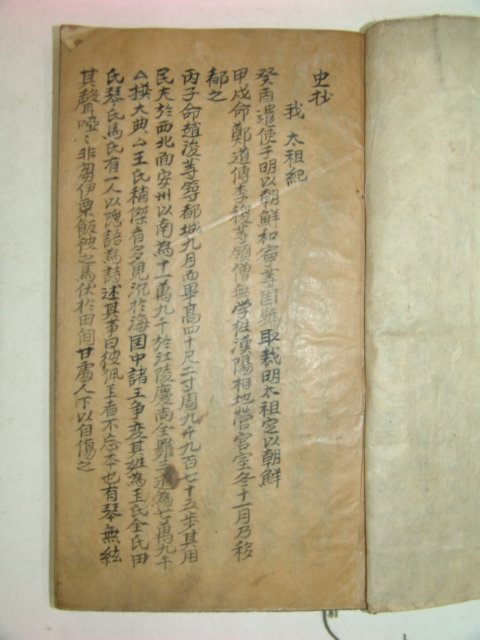 史抄
我 太祖紀
癸丙遣使于明以朝鮮和寧等国號取裁明太祖定以朝鮮
甲戌命鄭道傳李稷等領僧無学往漢陽相地營宮室冬十一月乃移
都之
丙子命趙浚等等都城九月而畢高四十尺二寸周九千九百七十五步其用
民夫於西北面安州以南為十一萬九千於江陵慶尚全羅三道為七萬九千
撰大典 王氏稍傑者多見沉於海国中諸王爭变其姓為玉氏全氏田
氏琴氏馬氏有一人以隱語為詩述其事曰彼佩玉者不忘本也有琴無絃
其聲啞々非芻伊粟飯秧之馬伏於田間甘處人下以自傷之